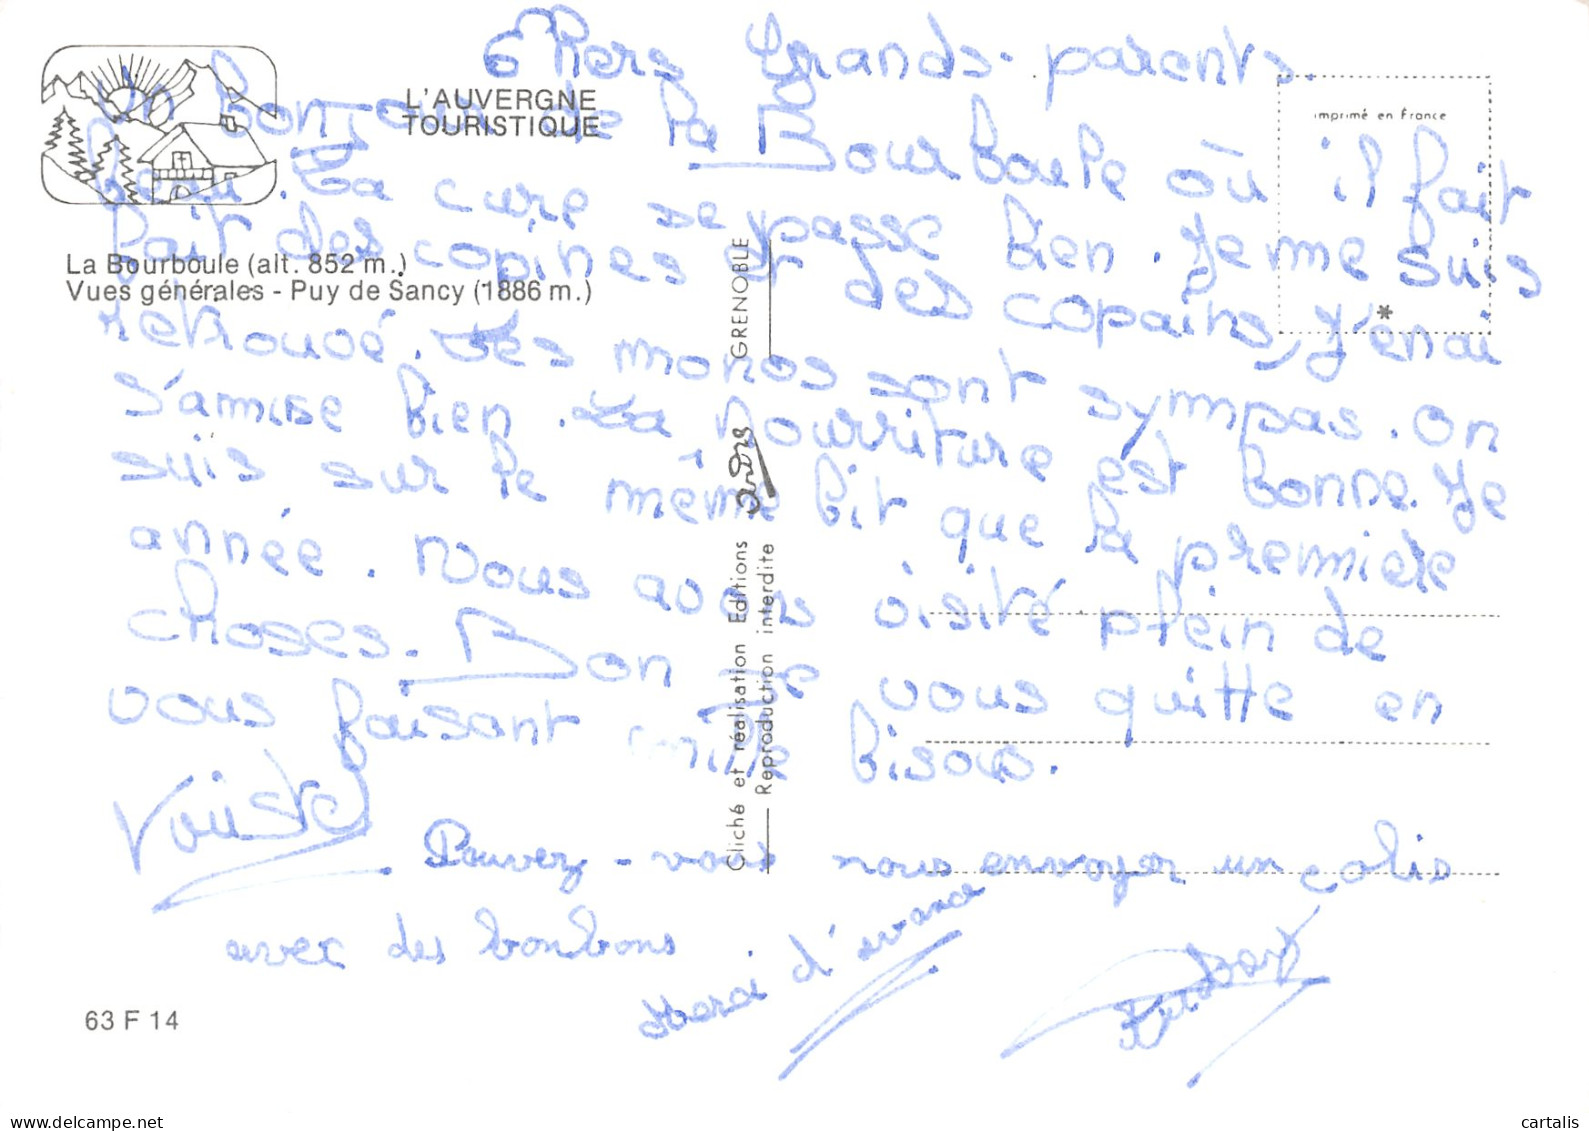 Chers Grands-parents.
Un bonjour de la Bourboule où il fait
beau. La cure se passe bien. Je me suis
fait des copines et des copains, j'en ai
retrouvé. Les monos sont sympas. On
s'amuse bien. La nourriture est bonne. Je
suis sur le même lit que la première
année. Nous avons visité plein de
choses. Bon je vous quitte en
vous faisant mille bisous.
Pouvez-vous nous envoyer un colis
avec des bonbons.
Merci d'avance
L'AUVERGNE
TOURISTIQUE
La Bourboule (alt. 852 m.)
Vues générales - Puy de Sancy (1886 m.)
imprimé en France
*
Cliché et réalisation Editions André GRENOBLE
Reproduction interdite
63 F 14
https://www.delcampe.net
cartalis